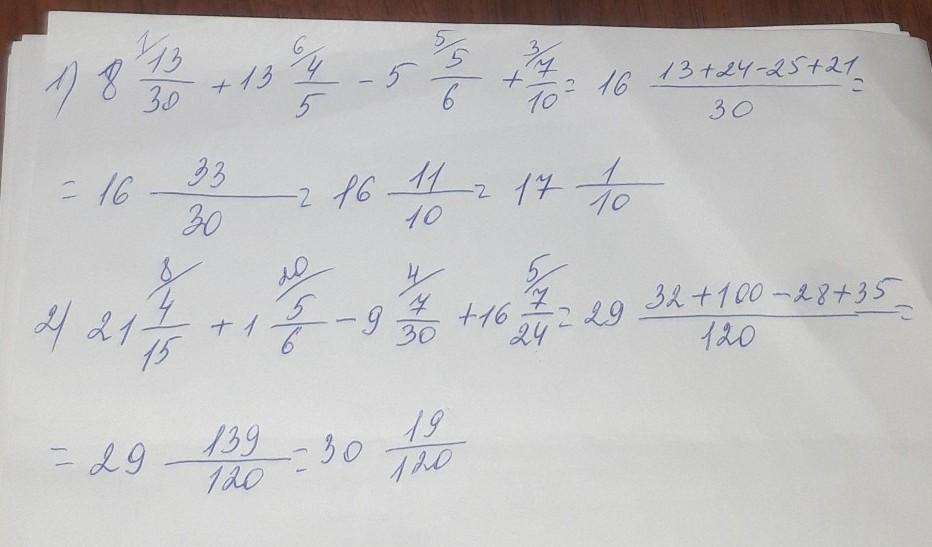 1) 8 1/ 13/30 + 13 6/ 4/5 - 5 5/ 5/6 + 3/ 7/10 = 16 (13+24-25+21)/30 =
= 16 33/30 = 16 11/10 = 17 1/10
2) 21 8/ 4/15 + 1 20/ 5/6 - 9 4/ 7/30 + 16 5/ 7/24 = 29 (32+100-28+35)/120 =
= 29 139/120 = 30 19/120